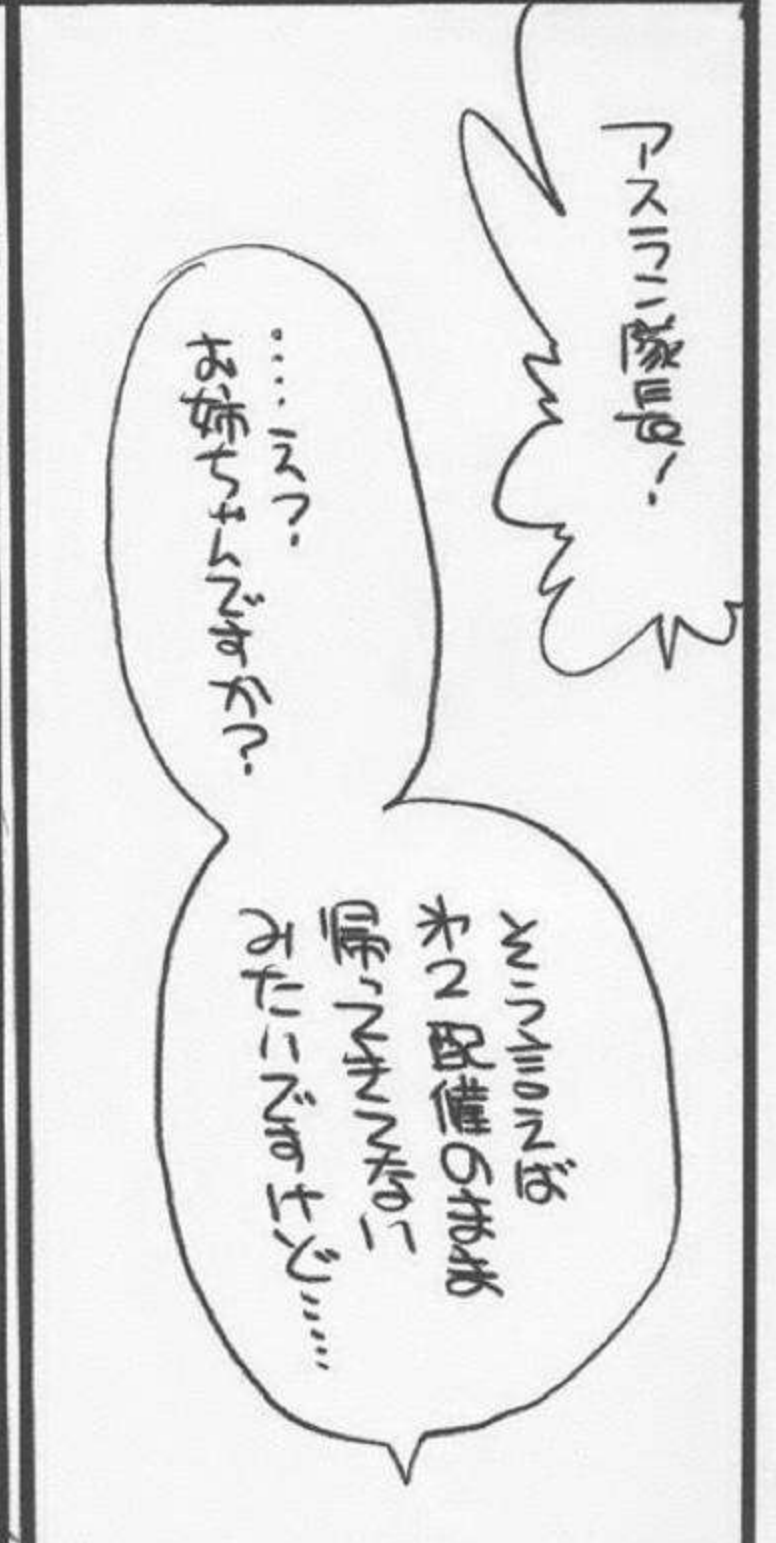 アスラン隊長!
……え?
お姉ちゃんですか?
そう言えば
帰ってきてない
みたいですけど……